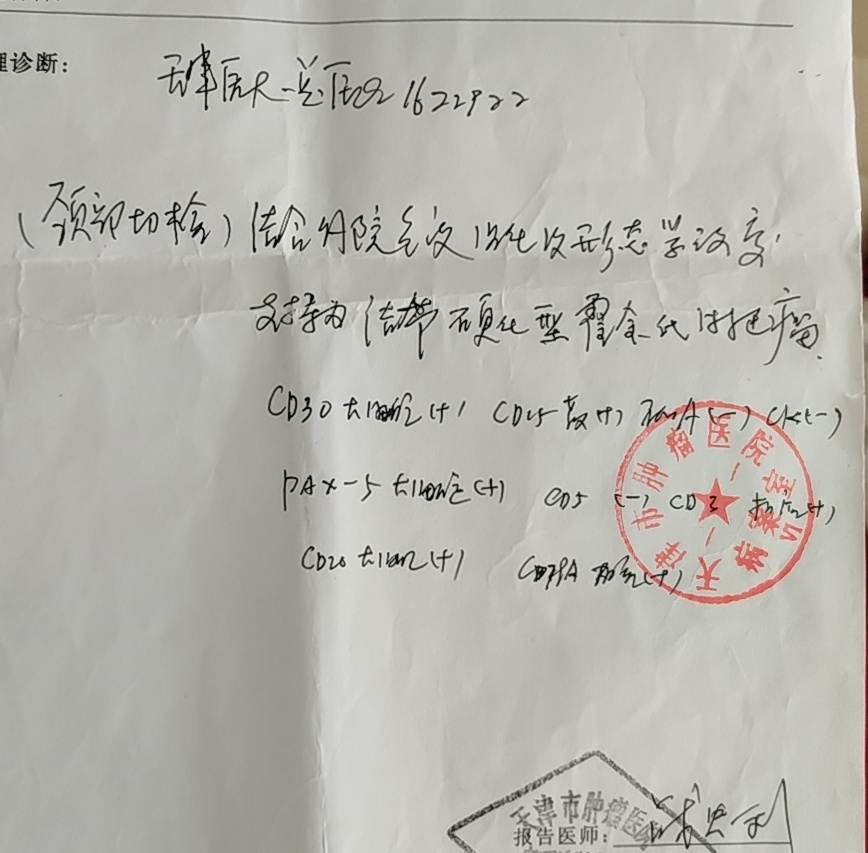 理诊断:
天津医大总医院 1622922
(颈部切检) 结合外院免疫组化及形态学改变,
支持为 结节硬化型霍奇金氏淋巴瘤.
CD30 大细胞(+) CD15 散(+) (-) CK(-)
PAX-5 大细胞(+) CD5 (-) CD3 (+)
CD20 大细胞(+) CD79A (+)
天津市肿瘤医院
病案室
天津市肿瘤医院
报告医师: